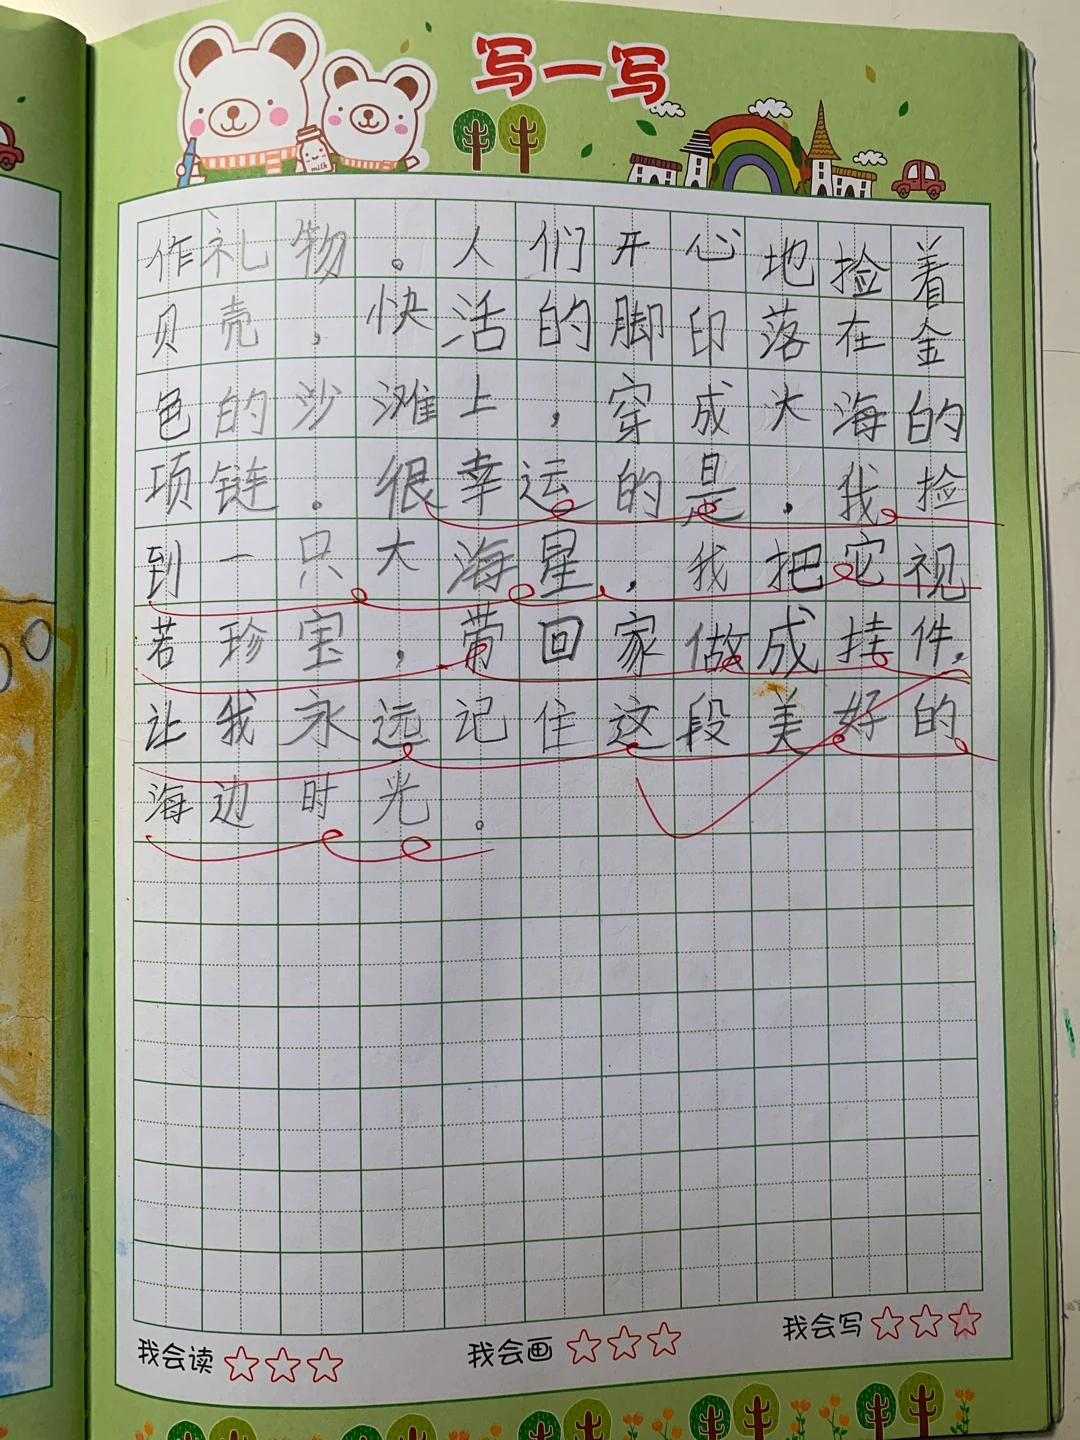 写一写
milk
作礼物。人们开心地捡着
贝壳，快活的脚印落在金
色的沙滩上，穿成大海的
项链。很幸运的是，我捡
到一只大海星，我把它视
若珍宝，带回家做成挂件，
让我永远记住这段美好的
海边时光。
我会读☆☆☆ 我会画☆☆☆ 我会写☆☆☆